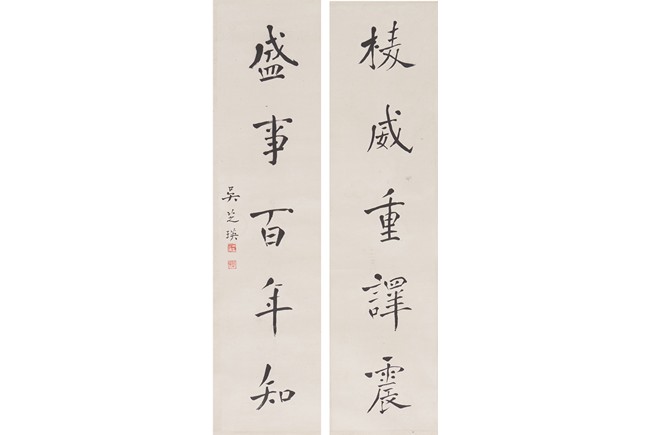 棱威重譯震
盛事百年知
吳芝瑛